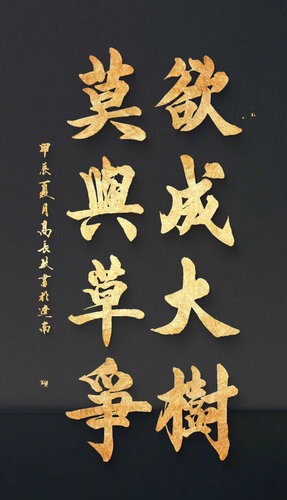 欲成大樹
莫與草爭
甲辰夏月高長效書於連南